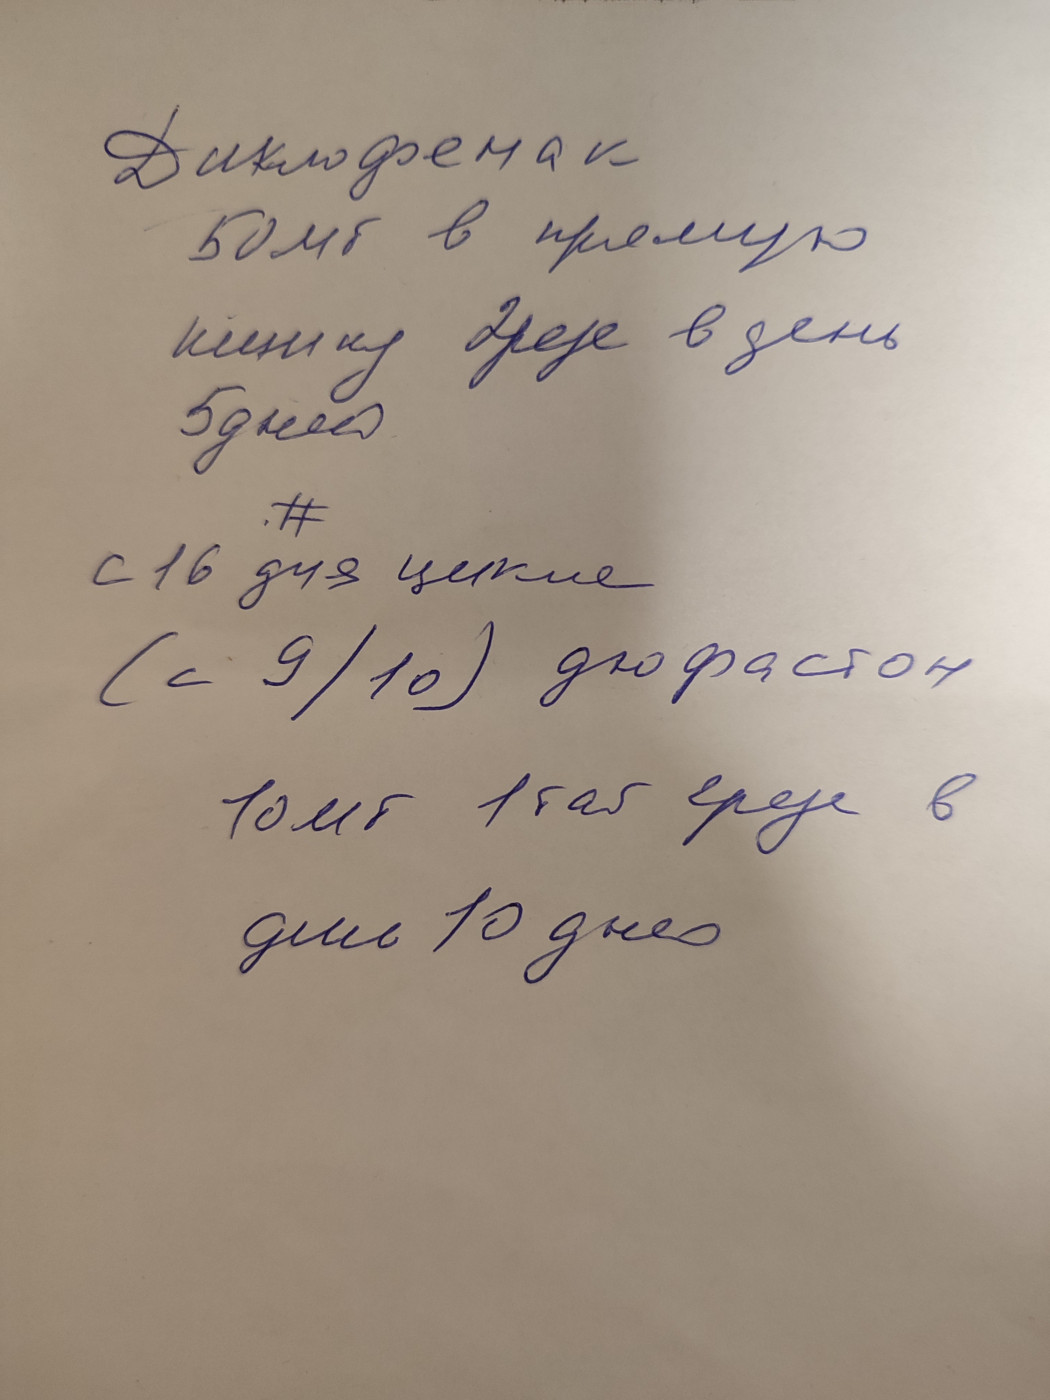 Диклофенак
50мг в прямую
кишку 2раза в день
5дней
#
с 16 дня цикла
(с 9/10) дюфастон
10мг 1таб 2раза в
день 10 дней